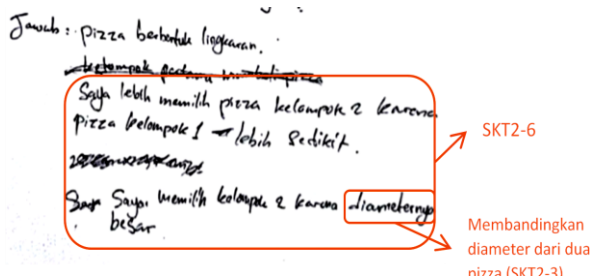 Jawab : pizza berbentuk lingkaran.
kelompok pertama
Saya lebih memilih pizza kelompok 2 karena
pizza kelompok 1 lebih sedikit.
Saya memilih kelompok 2 karena diameternya
besar
SKT2-6
Membandingkan
diameter dari dua
pizza (SKT2-3)